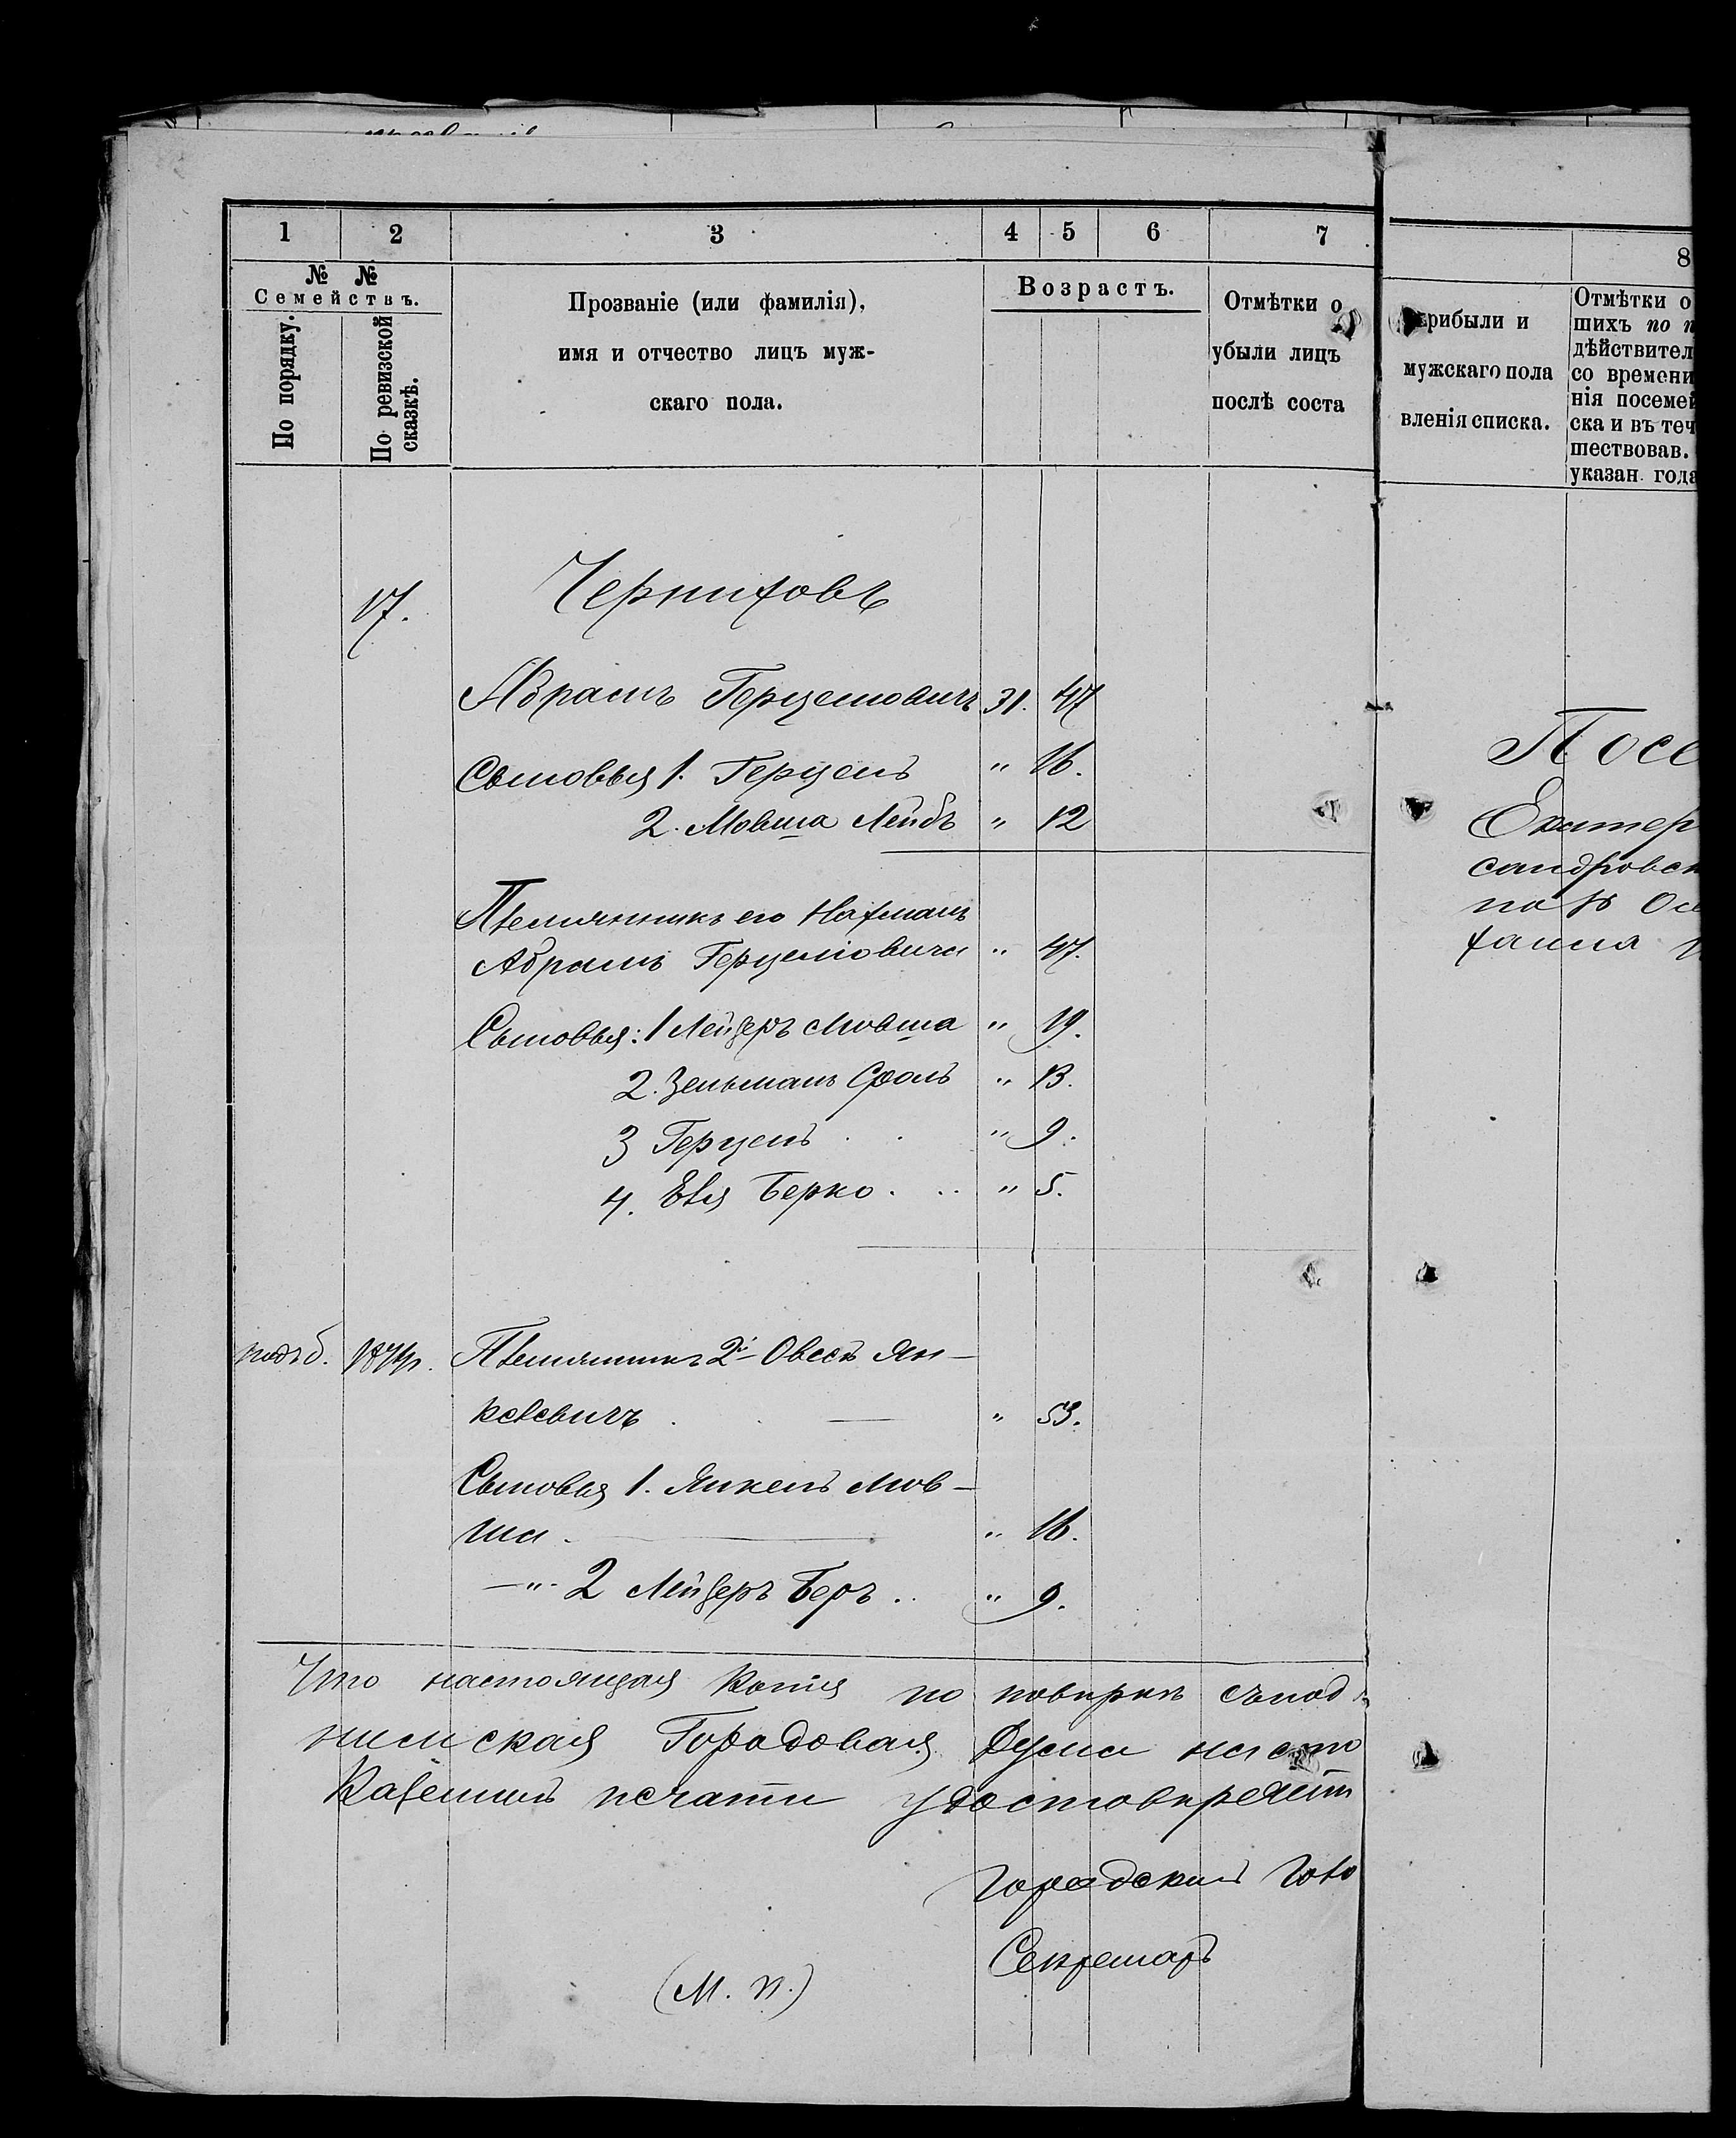 1 2 3 4 5 6 7
№ №
Семействъ.
По порядку.
По ревизской сказкѣ.
Прозваніе (или фамилія),
имя и отчество лицъ муж-
скаго пола.
Возрастъ.
Отмѣтки о
убыли лицъ
послѣ соста
17. Черниховъ
Абрамъ Герцеловичъ 31. 47
Сыновья 1. Герцель " 16.
2. Мовша Лейбъ " 12
Племянникъ его Нахманъ
Абрамъ Герцеловича " 47.
Сыновья: 1 Лейзеръ Мовша " 19.
2. Зельманъ Сроль " 13.
3 Герцель " 9.
4. Евя Берко " 5.
Племянникъ 2й Овсей Ян-
келевичъ " 53.
Сыновья 1. Янкель Мов-
ша " 16.
—"— 2 Лейзеръ Беръ " 9.
Что настоящая копія по повѣркѣ съ подл
Городовая Дума на сто
Казенной печати удостовѣряетъ
Городской Голо
Секретарь
(М. П.)
8
прибыли и
мужскаго пола
вленія списка.
Отмѣтки о
шихъ по п
дѣйствител
со времени
нія посемей
ска и въ теч
шествовав.
указан. года
Посе
Екатер
сандровск